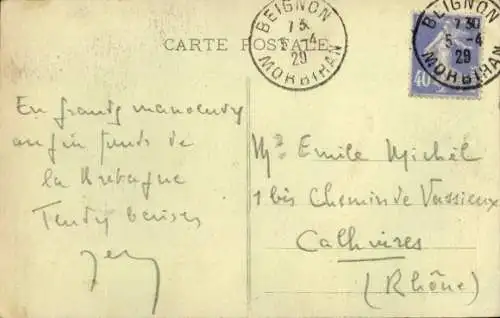 CARTE POSTALE
BEIGNON
7 30
5 - 4
29
MORBIHAN
BEIGNON
7 30
5 - 4
29
MORBIHAN
40
En grandes manoeuvres
au fin fonds de
la Bretagne
Tendres baisers
Me Emile Michel
1 bis Chemin de Vassieux
Caluires
(Rhône)